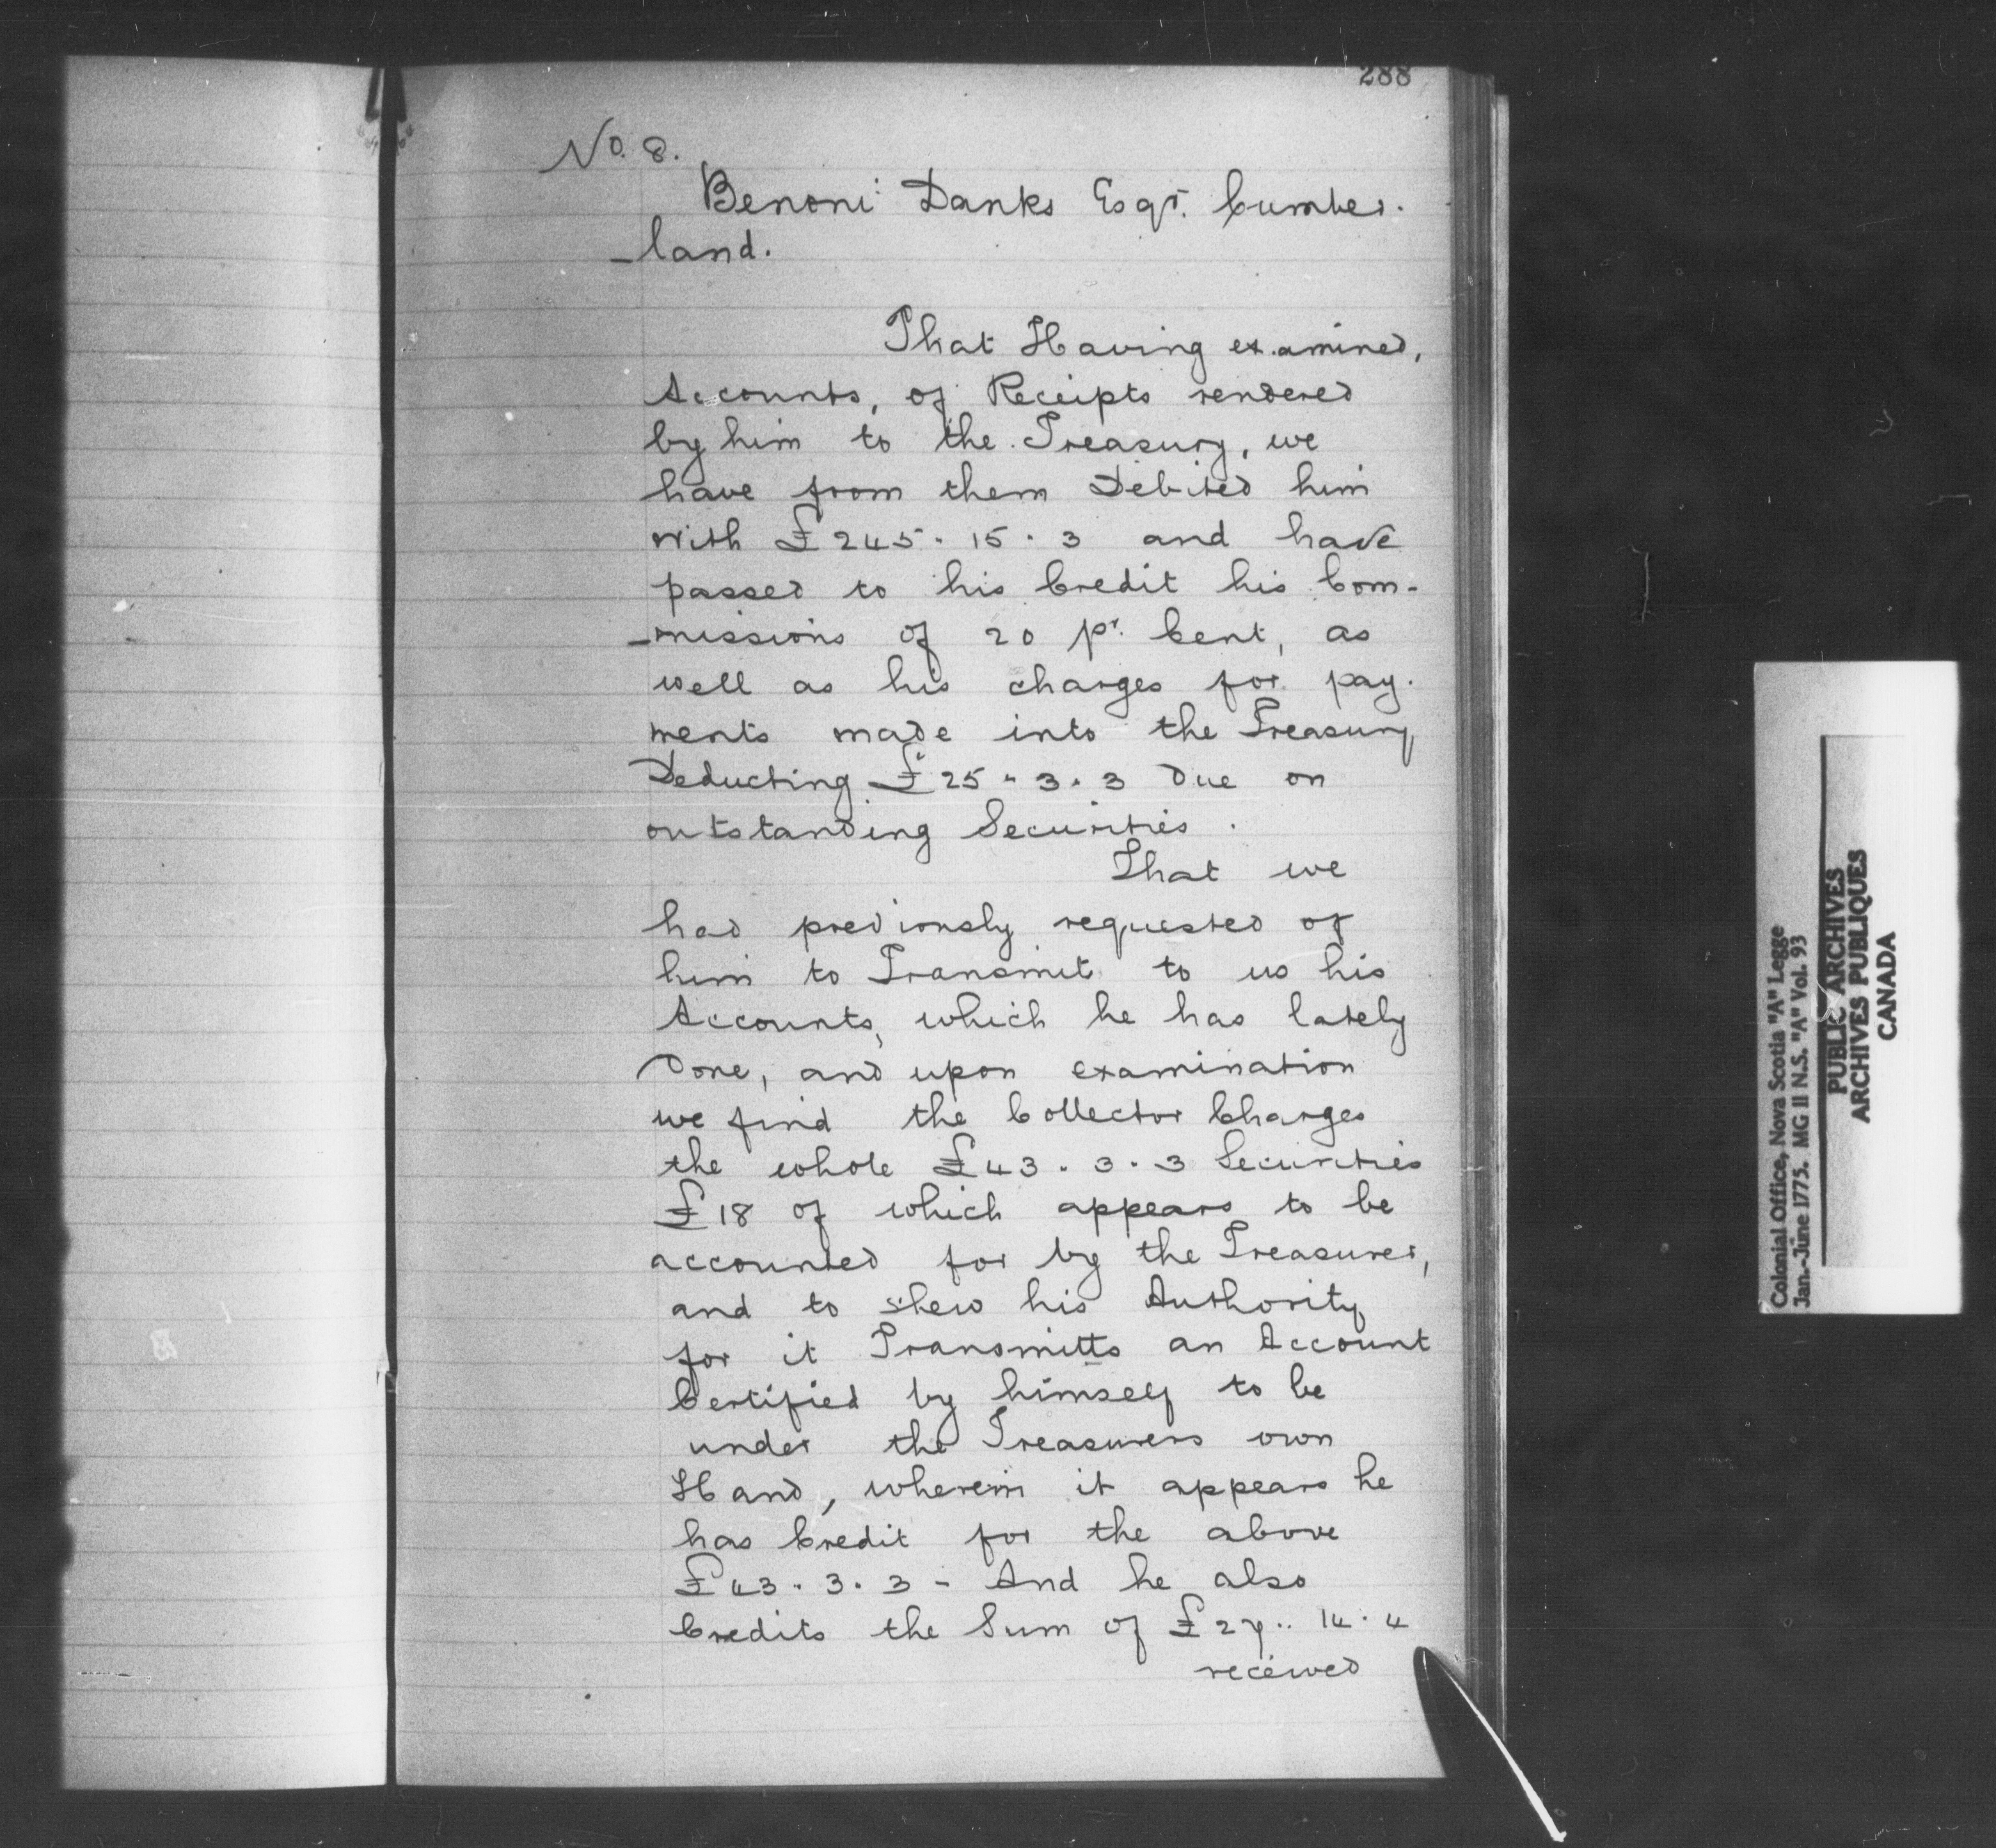 288
No. 8.
Benoni Danks Esqr. Cumber-
-land.
That Having examined,
Accounts, of Receipts rendered
by him to the Treasury, we
have from them Debited him
with £245.15.3 and have
passed to his Credit his Com-
-missions of 20 pr. Cent, as
well as his charges for pay-
ments made into the Treasury
Deducting £25"3.3 Due on
outstanding Securities.
That we
had previously requested of
him to Transmit to us his
Accounts, which he has lately
Done, and upon examination
we find the Collector Charges
the whole £43.3.3 Securities
£18 of which appears to be
accounted for by the Treasurer,
and to shew his Authority
for it Transmitts an Account
Certified by himself to be
under the Treasurers own
Hand, wherein it appears he
has Credit for the above
£43.3.3 - And he also
Credits the Sum of £27..14.4
received
Colonial Office, Nowa Scotia "A" Legge
Jan.-June 1775. MG 11 N.S. "A" Vol. 93
PUBLIC ARCHIVES
ARCHIVES PUBLIQUES
CANADA